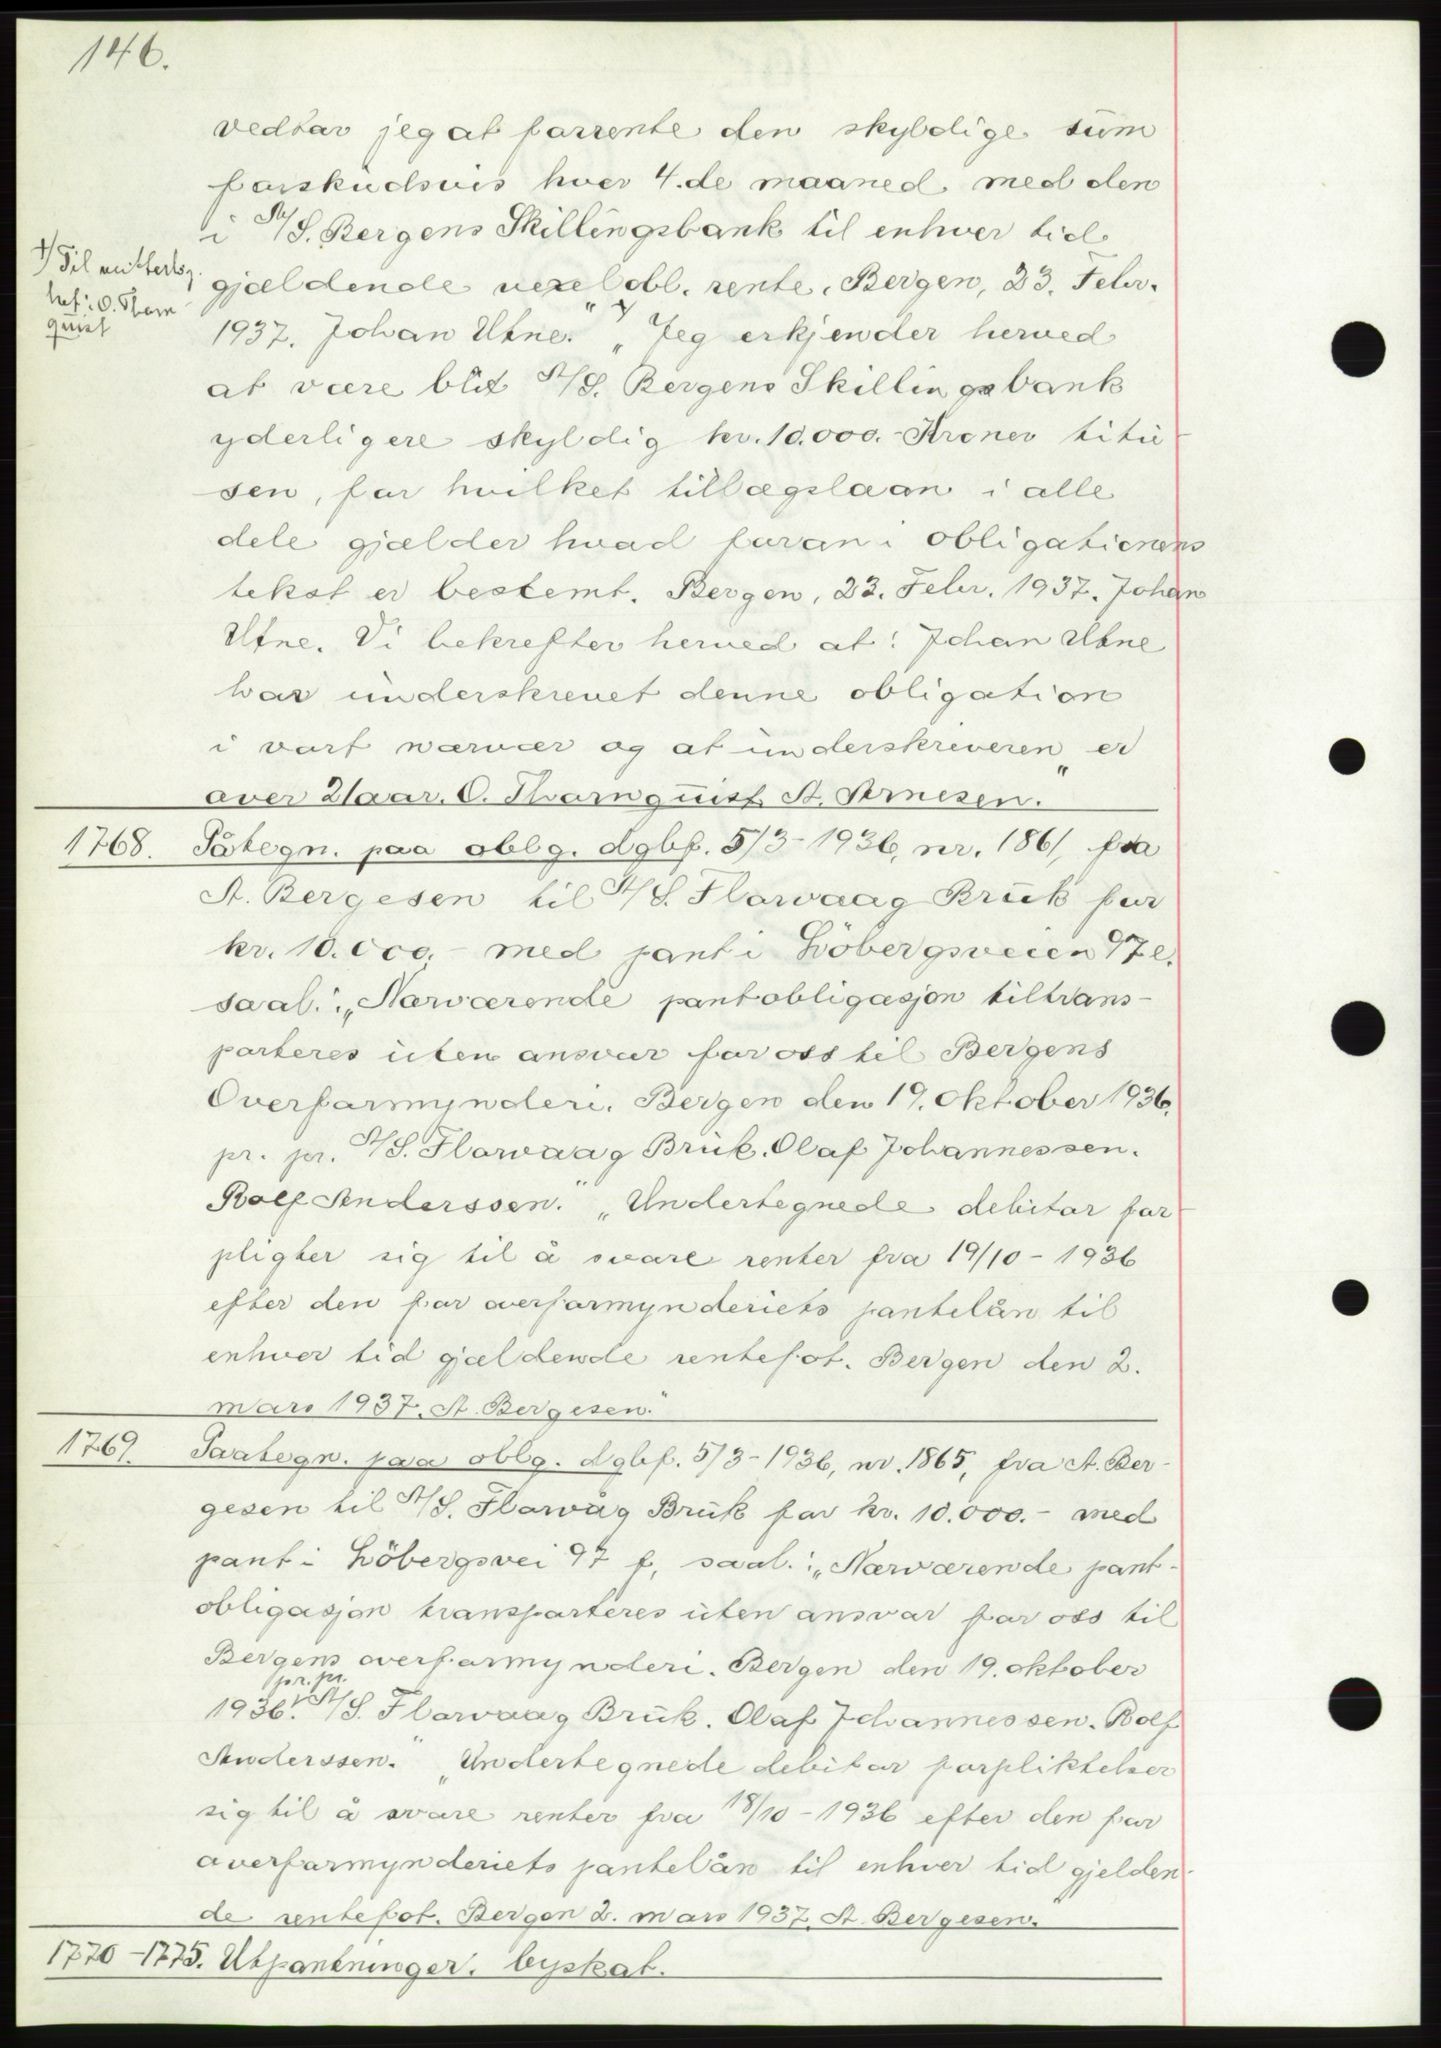 146.
vedtar jeg at forrente den skyldige sum
forskudsvis hver 4.de maaned med den
i A/S. Bergens Skillingsbank til enhver tid
gjældende vexelobl. rente. Bergen, 23. Febr.
1937. Johan Utne." ⁊ „Jeg erkjender herved
⁊/ Til vitterlig-
het: O. Thorn-
quist
at være blit A/S. Bergens Skillingsbank
yderligere skyldig kr. 10.000.- Kroner titu-
sen, for hvilket tillægslaan i alle
dele gjælder hvad foran i obligationens
tekst er bestemt. Bergen, 23. Febr. 1937. Johan
Utne. Vi bekrefter herved at: Johan Utne
har underskrevet denne obligation
i vort nærvær og at underskriveren er
over 21 aar. O. Thornquist. A. Arnesen."
1768. Påtegn. paa oblg. dgbf. 5/3-1936, nr. 1861, fra
A. Bergesen til A/S. Florvaag Bruk for
kr. 10.000.- med pant i Löbergsveien 97 e.
saal.: „Nærværende pantobligasjon tiltrans-
porteres uten ansvar for oss til Bergens
Overformynderi. Bergen den 19. oktober 1936.
pr. pr. A/S. Florvaag Bruk. Olaf Johannessen.
Rolf Anderssen." „Undertegnede debitor for-
pligter sig til å svare renter fra 19/10-1936
efter den for overformynderiets pantelån til
enhver tid gjældende rentefot. Bergen den 2.
mars 1937. A. Bergesen."
1769. Paategn. paa oblg. dgbf. 5/3-1936, nr. 1865, fra A. Ber-
gesen til A/S. Florvåg Bruk for kr. 10.000.- med
pant i Löbergsvei 97 f, saal.: „Nærværende pant-
obligasjon transporteres uten ansvar for oss til
Bergens overformynderi. Bergen den 19. oktober
1936. pr. pr. A/S. Florvaag Bruk. Olaf Johannessen. Rolf
Anderssen." „Undertegnede debitor forpliktelser
sig til å svare renter fra 18/10-1936 efter den for
overformynderiets pantelån til enhver tid gjelden-
de rentefot. Bergen 2. mars 1937. A. Bergesen.
1770-1775. Utpantninger. byskat.